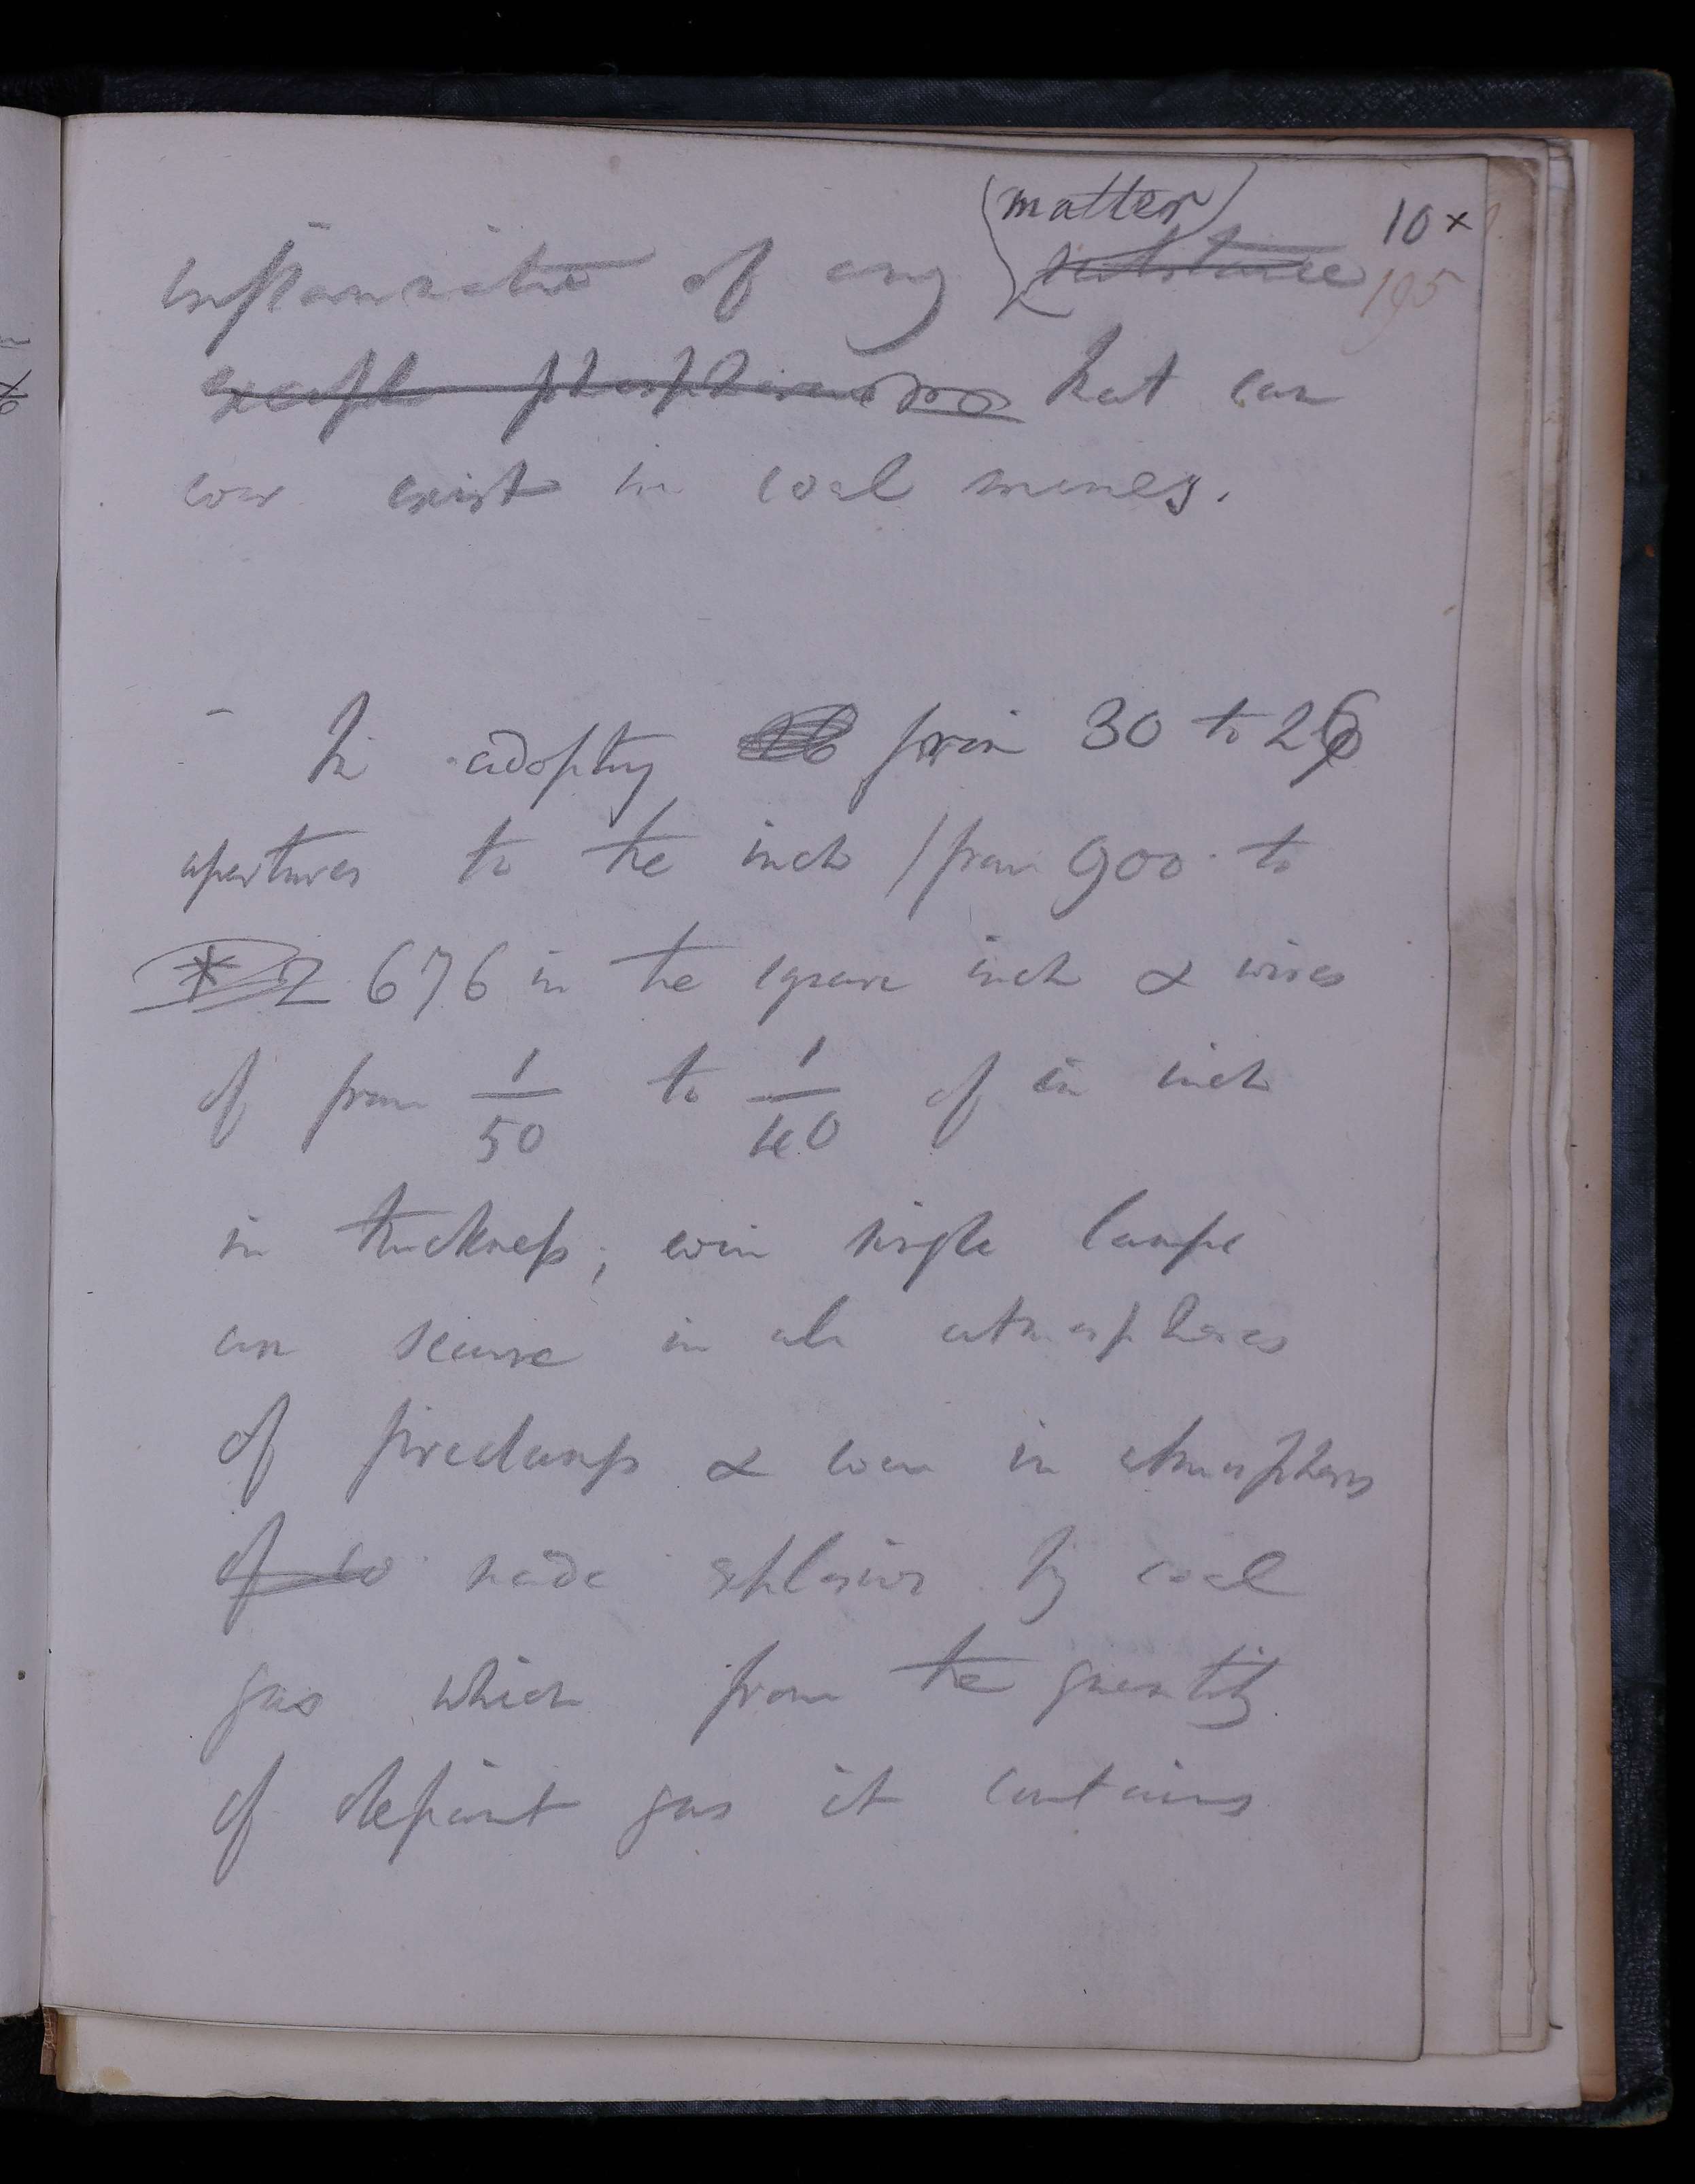 (matter) 10 x
inflammation of any substance 195
except phosphorus that can
ever exist in coal mines.
In adopting from 30 to 26
apertures to the inch / from 900 to
* 2 676 in the square inch & wires
of from 1/50 to 1/40 of an inch
in thickness; even single lamps
are secure in all atmospheres
of firedamp & even in atmospheres
of made explosive by coal
gas which from the quantity
of olefiant gas it contains